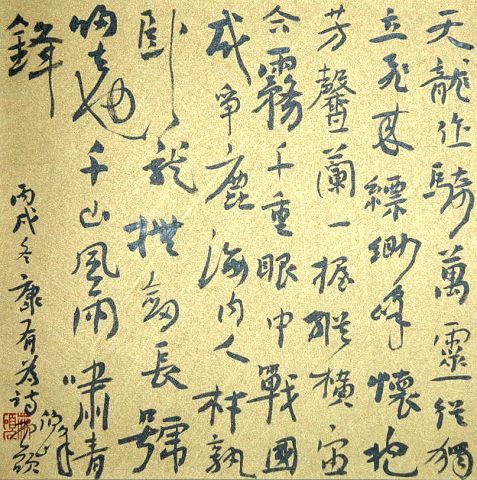 天龍作騎萬靈從獨
立飛來縹緲峰懷抱
芳馨蘭一握縱橫宙
合霧千重眼中戰國
成爭鹿海内人材孰
臥龍撫劍長號
歸去也千山風雨嘯青
鋒
丙戌冬康有為詩